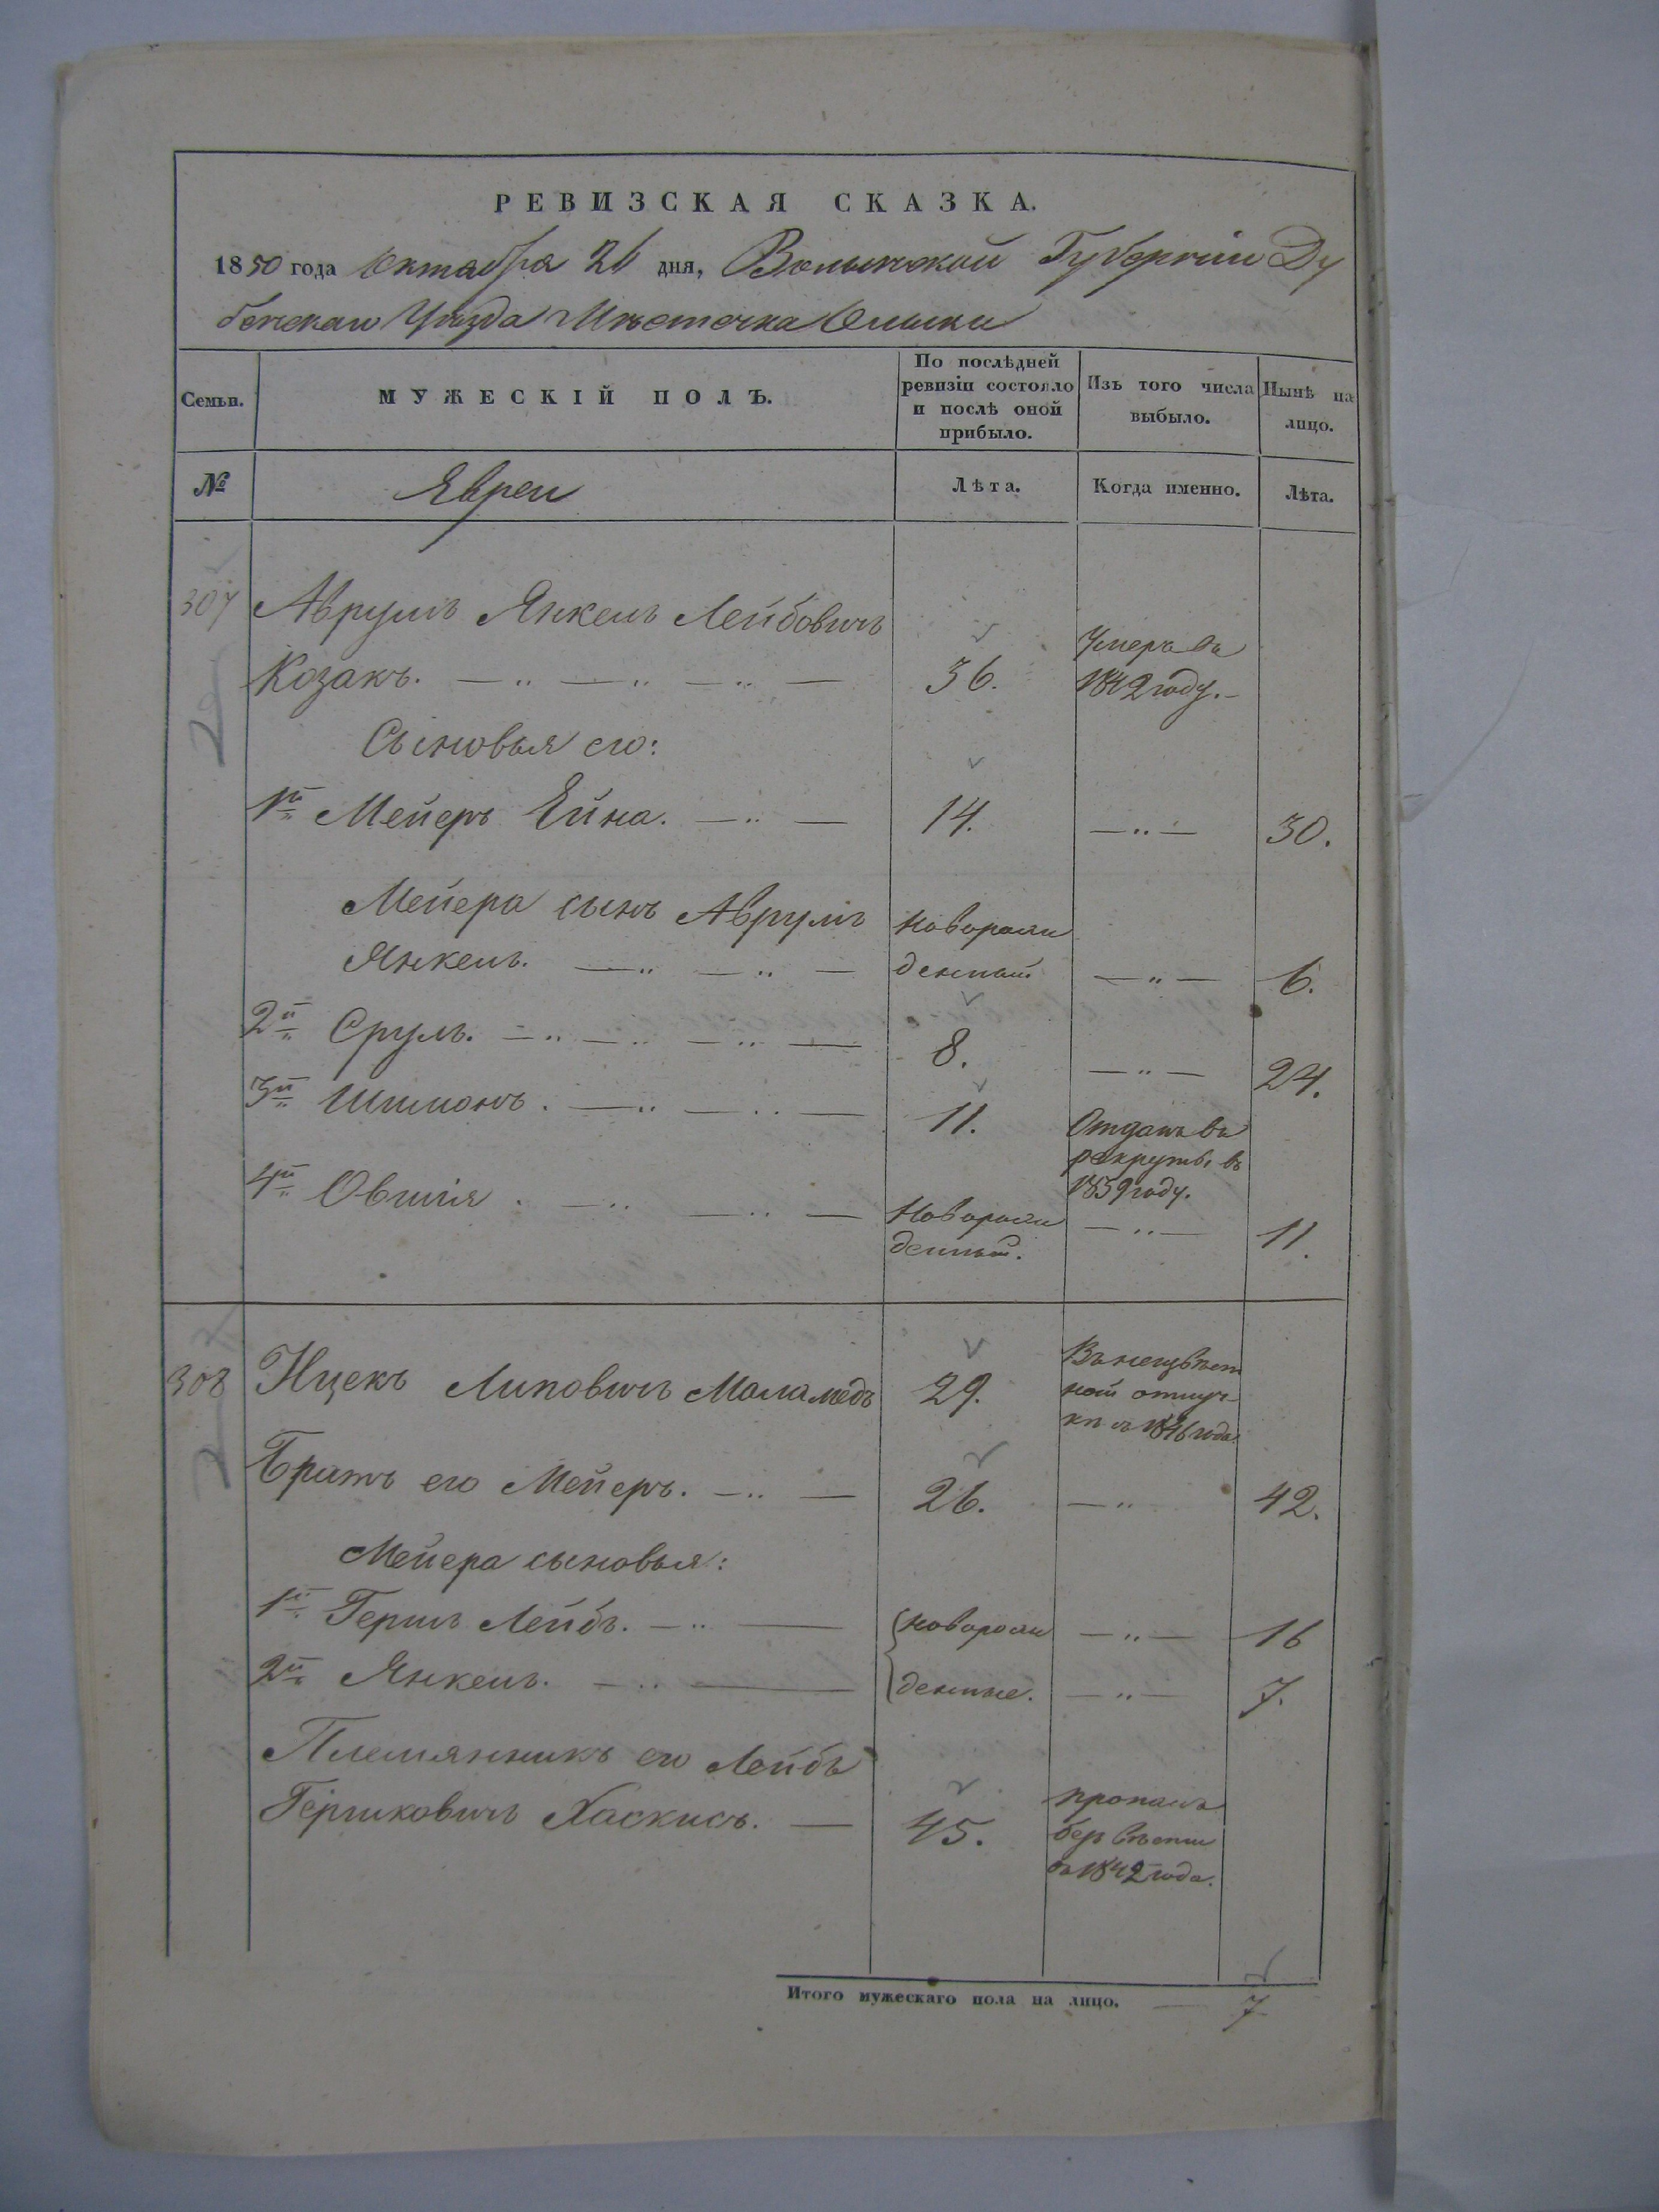 РЕВИЗСКАЯ СКАЗКА.
1850 года Октября 26 дня, Волынской Губерніи Ду
бенскаго Уѣзда Мѣстечка Олыки
Семьи.
МУЖЕСКІЙ ПОЛЪ.
По послѣдней
ревизіи состояло
и послѣ оной
прибыло.
Изъ того числа
выбыло.
Нынѣ на
лицо.
№
Евреи
Лѣта.
Когда именно.
Лѣта.
307 Аврумъ Янкель Лейбовичъ
Козакъ. 36. Умеръ въ
1842 году.
Сыновья его:
1й Мейеръ Ейна. 14. 30.
Мейера сынъ Аврумъ новорож
Янкель. денный 6.
2й Сруль. 8. 24.
3й Шимонъ. 11. Отданъ въ
рекруты въ
1839 году.
4й Овшія. Новорож
денный. 11.
308 Ицекъ Липовичъ Маламедъ 29. Въ неизвѣст
ной отлуч-
кѣ съ 1846 года.
Братъ его Мейеръ. 26. 42.
Мейера сыновья:
1й Гершъ Лейбъ. новорож 16
2й Янкель. денные. 7.
Племянникъ его Лейбъ
Гершковичъ Хаскисъ. 45. пропалъ
безъ вѣсти
съ 1842 года.
Итого мужескаго пола на лицо. 7